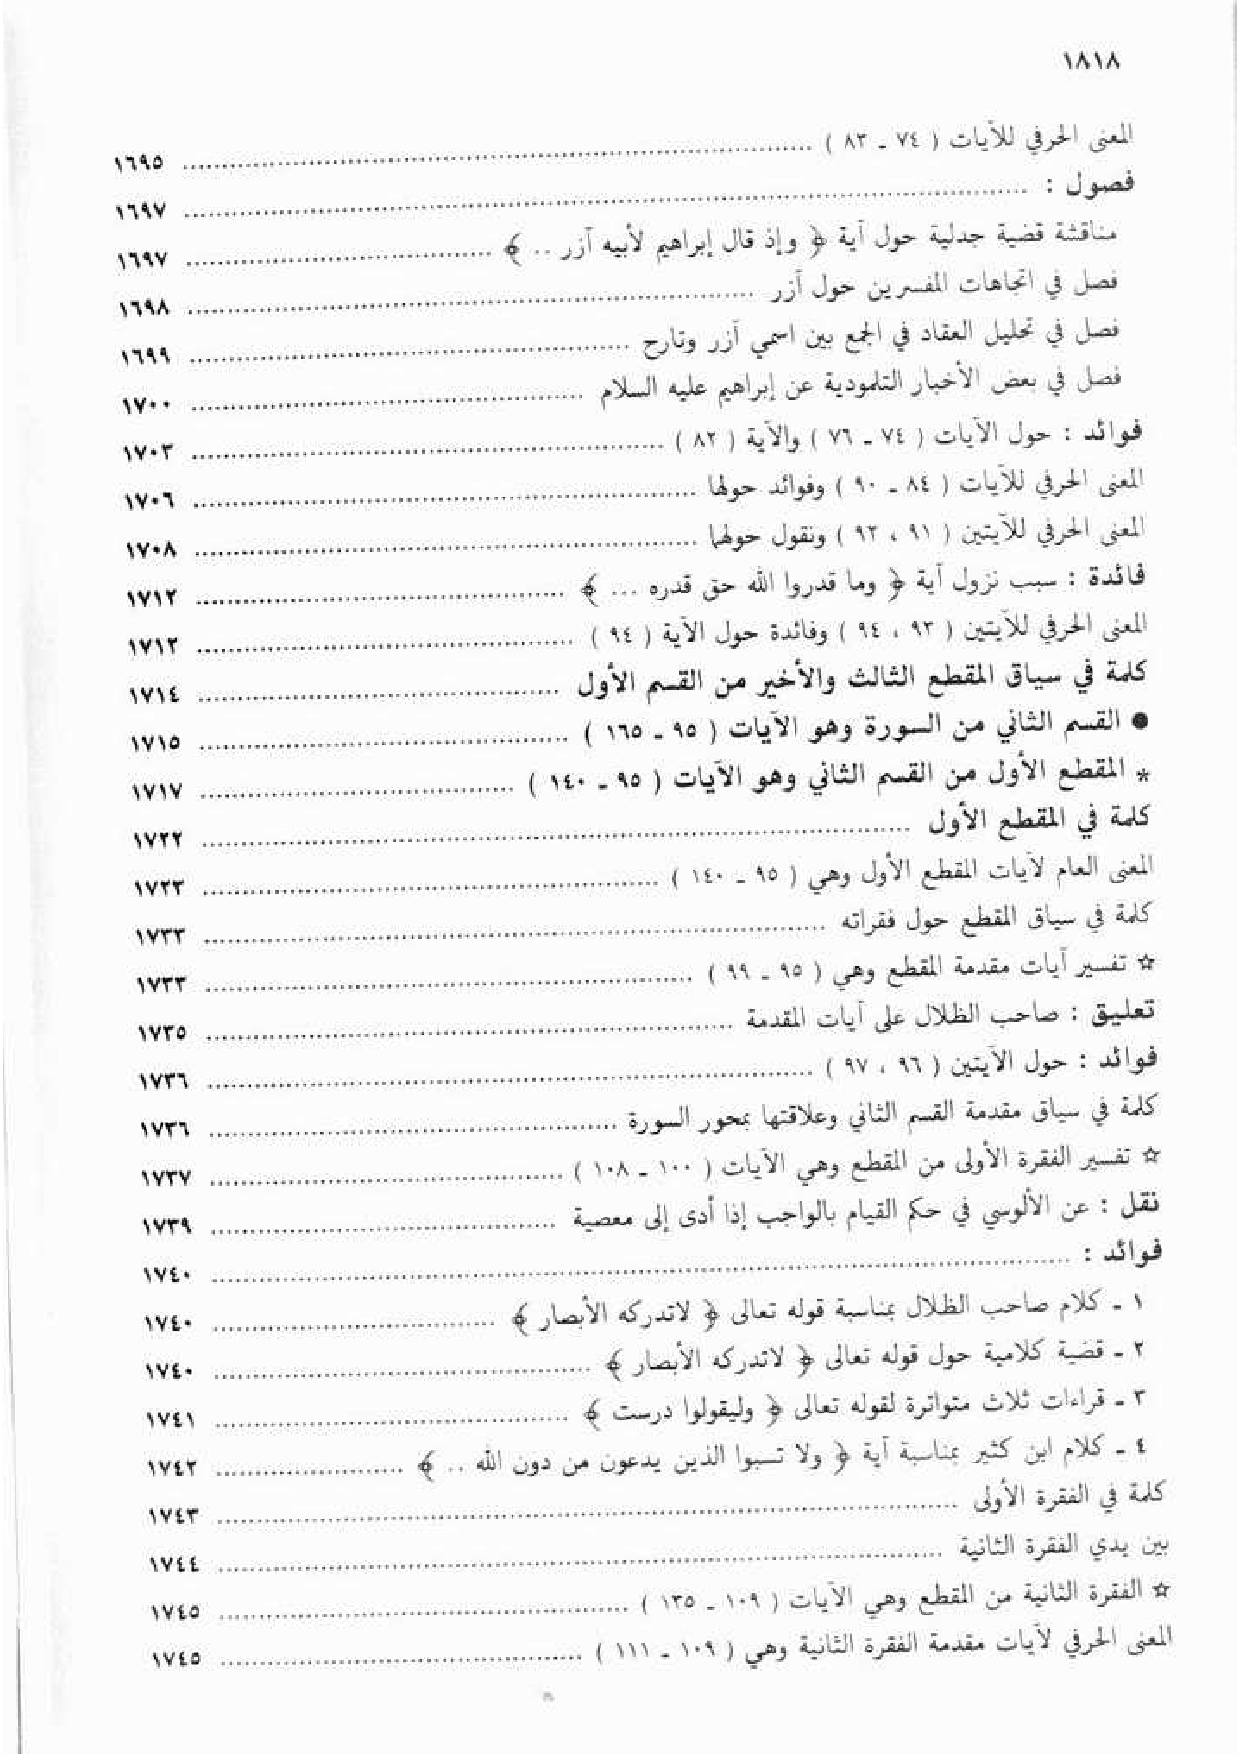 ١٨١٨
المعنى الحرفي للآيات ( ٧٤ ـ ٨٣ ) ........ ١٦٩٥
فصول : ........ ١٦٩٧
مناقشة قضية جدلية حول آية ﴿ وإذ قال إبراهيم لأبيه آزر .. ﴾ ........ ١٦٩٧
فصل في اتجاهات المفسرين حول آزر ........ ١٦٩٨
فصل في تحليل العقاد في الجمع بين اسمي آزر وتارح ........ ١٦٩٩
فصل في بعض الأخبار التلمودية عن إبراهيم عليه السلام ........ ١٧٠٠
فوائد : حول الآيات ( ٧٤ ـ ٧٦ ) والآية ( ٨٢ ) ........ ١٧٠٣
المعنى الحرفي للآيات ( ٨٤ ـ ٩٠ ) وفوائد حولها ........ ١٧٠٦
المعنى الحرفي للآيتين ( ٩١ ، ٩٢ ) ونقول حولهما ........ ١٧٠٨
فائدة : سبب نزول آية ﴿ وما قدروا الله حق قدره ... ﴾ ........ ١٧١٢
المعنى الحرفي للآيتين ( ٩٣ ، ٩٤ ) وفائدة حول الآية ( ٩٤ ) ........ ١٧١٣
كلمة في سياق المقطع الثالث والأخير من القسم الأول ........ ١٧١٤
● القسم الثاني من السورة وهو الآيات ( ٩٥ ـ ١٦٥ ) ........ ١٧١٥
* المقطع الأول من القسم الثاني وهو الآيات ( ٩٥ ـ ١٤٠ ) ........ ١٧١٧
كلمة في المقطع الأول ........ ١٧٢٢
المعنى العام لآيات المقطع الأول وهي ( ٩٥ ـ ١٤٠ ) ........ ١٧٢٣
كلمة في سياق المقطع حول فقراته ........ ١٧٣٣
☆ تفسير آيات مقدمة المقطع وهي ( ٩٥ ـ ٩٩ ) ........ ١٧٣٣
تعليق : صاحب الظلال على آيات المقدمة ........ ١٧٣٥
فوائد : حول الآيتين ( ٩٦ ، ٩٧ ) ........ ١٧٣٦
كلمة في سياق مقدمة القسم الثاني وعلاقتها بمحور السورة ........ ١٧٣٦
☆ تفسير الفقرة الأولى من المقطع وهي الآيات ( ١٠٠ ـ ١٠٨ ) ........ ١٧٣٧
نقل : عن الألوسي في حكم القيام بالواجب إذا أدى إلى معصية ........ ١٧٣٩
فوائد : ........ ١٧٤٠
١ ـ كلام صاحب الظلال بمناسبة قوله تعالى ﴿ لاتدركه الأبصار ﴾ ........ ١٧٤٠
٢ ـ قضية كلامية حول قوله تعالى ﴿ لاتدركه الأبصار ﴾ ........ ١٧٤٠
٣ ـ قراءات ثلاث متواترة لقوله تعالى ﴿ وليقولوا درست ﴾ ........ ١٧٤١
٤ ـ كلام ابن كثير بمناسبة آية ﴿ ولا تسبوا الذين يدعون من دون الله .. ﴾ ........ ١٧٤٢
كلمة في الفقرة الأولى ........ ١٧٤٣
بين يدي الفقرة الثانية ........ ١٧٤٤
☆ الفقرة الثانية من المقطع وهي الآيات ( ١٠٩ ـ ١٣٥ ) ........ ١٧٤٥
المعنى الحرفي لآيات مقدمة الفقرة الثانية وهي ( ١٠٩ ـ ١١١ ) ........ ١٧٤٥